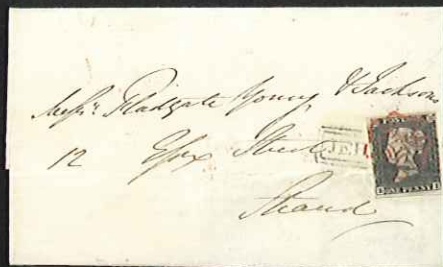 Messrs. Fladgate Young & Jackson
12 Essex Street
Strand
ONE PENNY